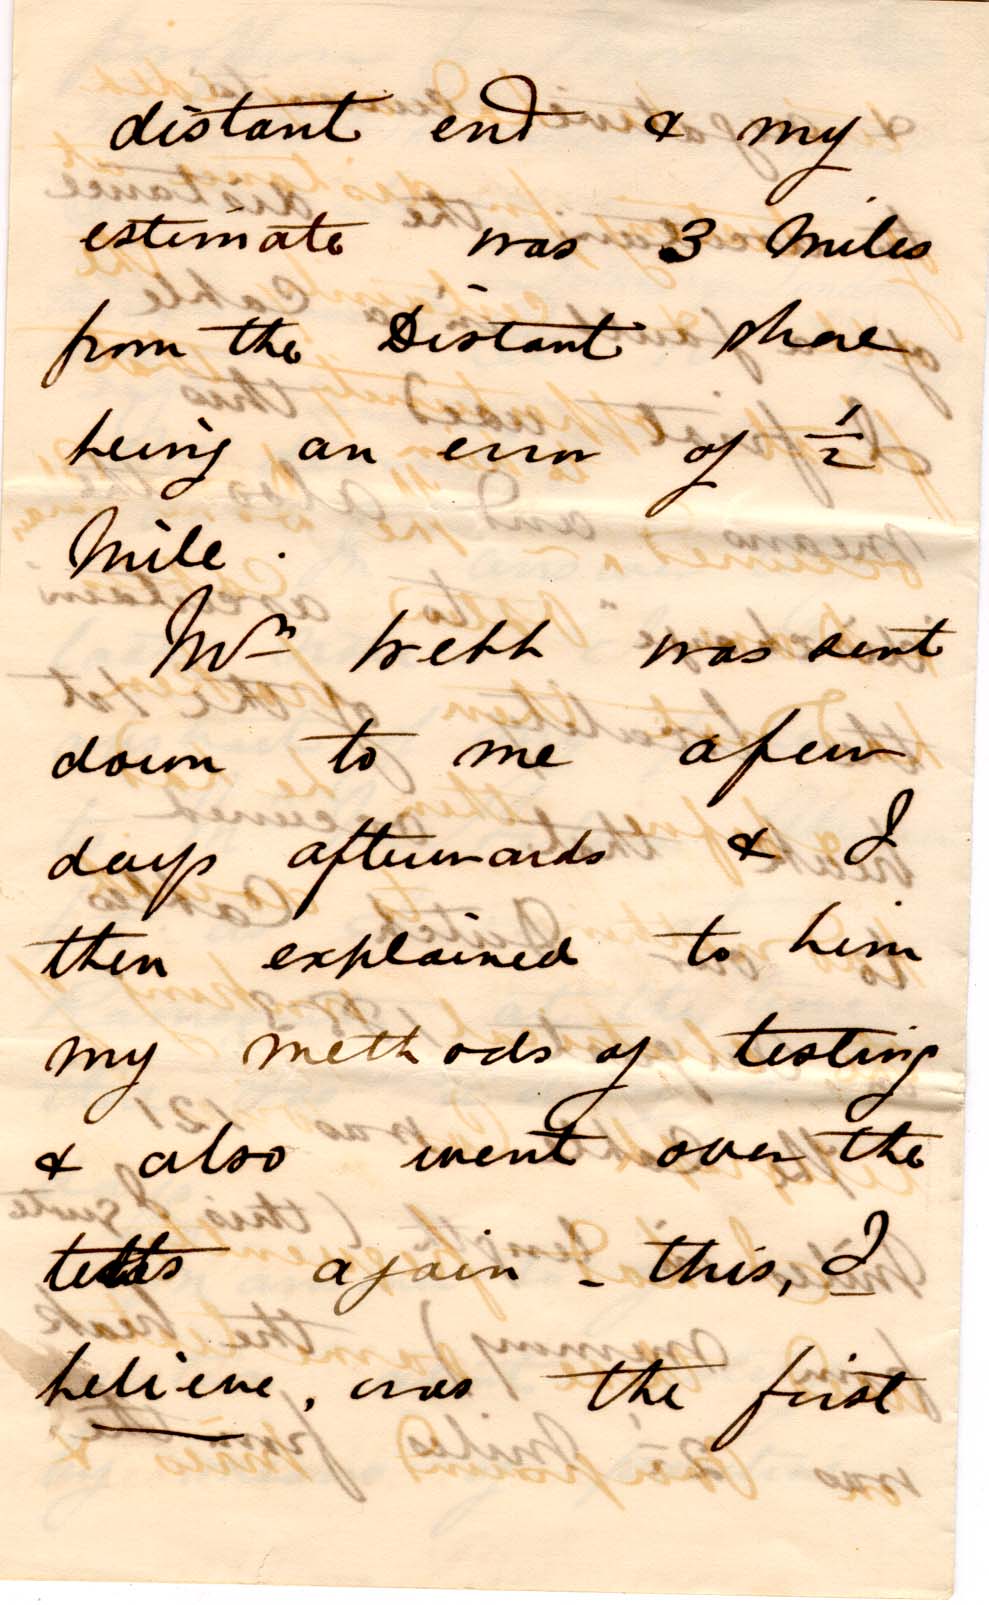 distant end & my
estimate was 3 Miles
from the Distant shore
being an error of 1/2
Mile.
Mr Webb was sent
down to me a few
days afterwards & I
then explained to him
my methods of testing
& also went over the
tests again - this, I
believe, was the first